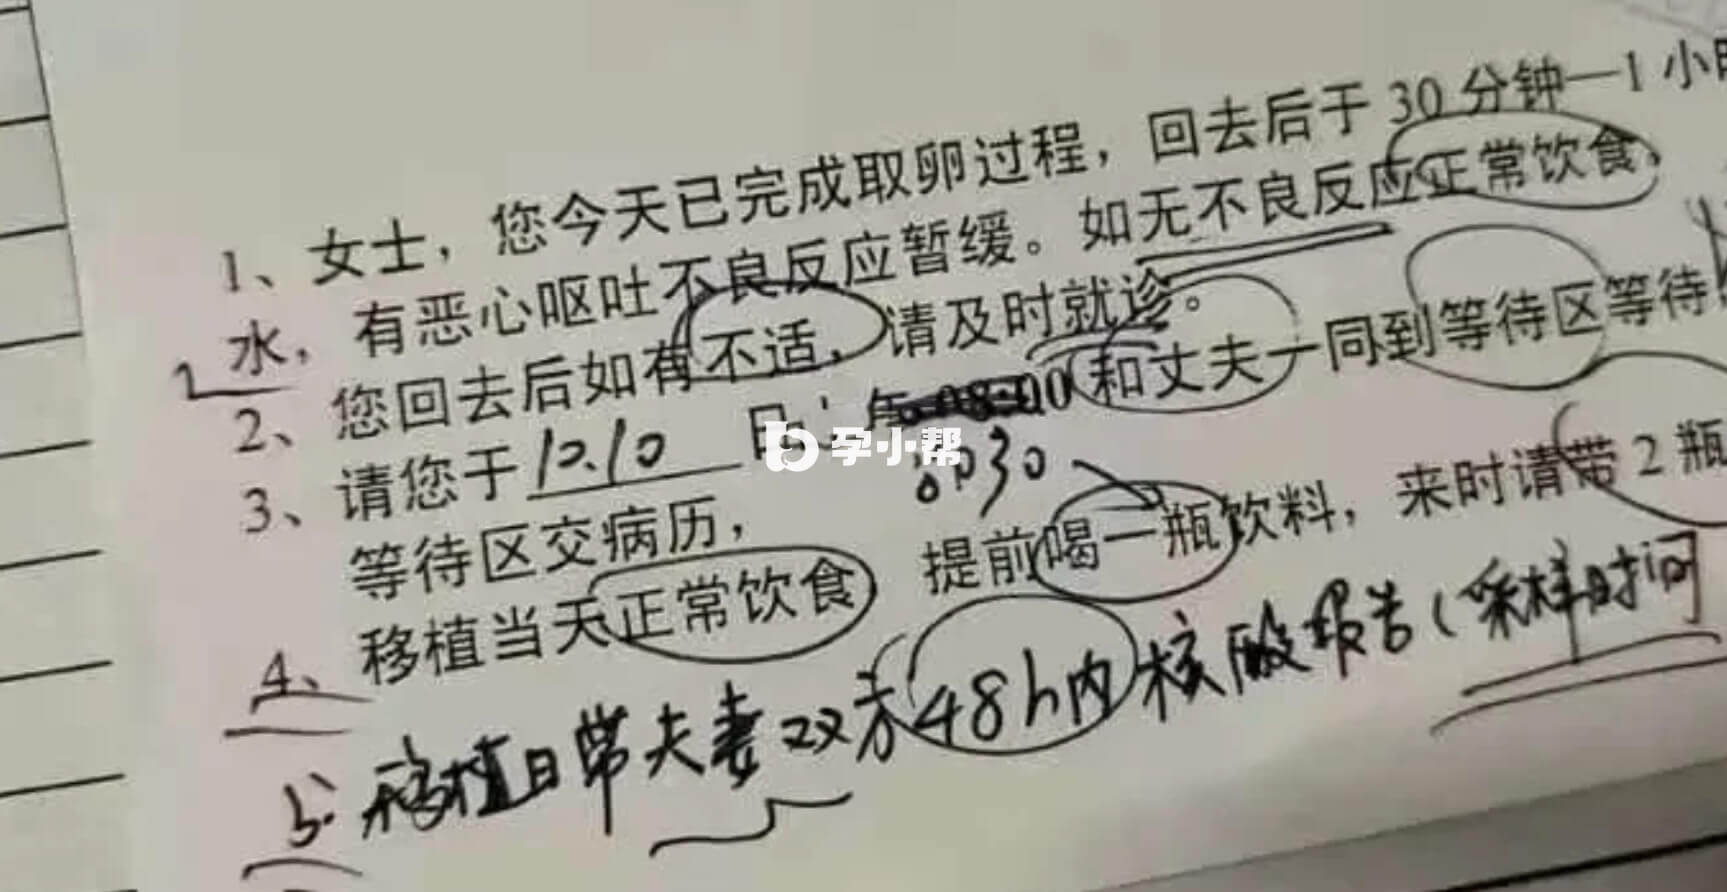 1、女士，您今天已完成取卵过程，回去后于 30 分钟—1 小时
水，有恶心呕吐不良反应暂缓。如无不良反应正常饮食。
2、您回去后如有不适，请及时就诊。
3、请您于 10.10 日 08:00 和丈夫一同到等待区等待
8:30
等待区交病历，
4、移植当天正常饮食 提前喝一瓶饮料，来时请带 2 瓶
5. 移植日带夫妻双方48h内核酸报告（采样时间
孕小帮